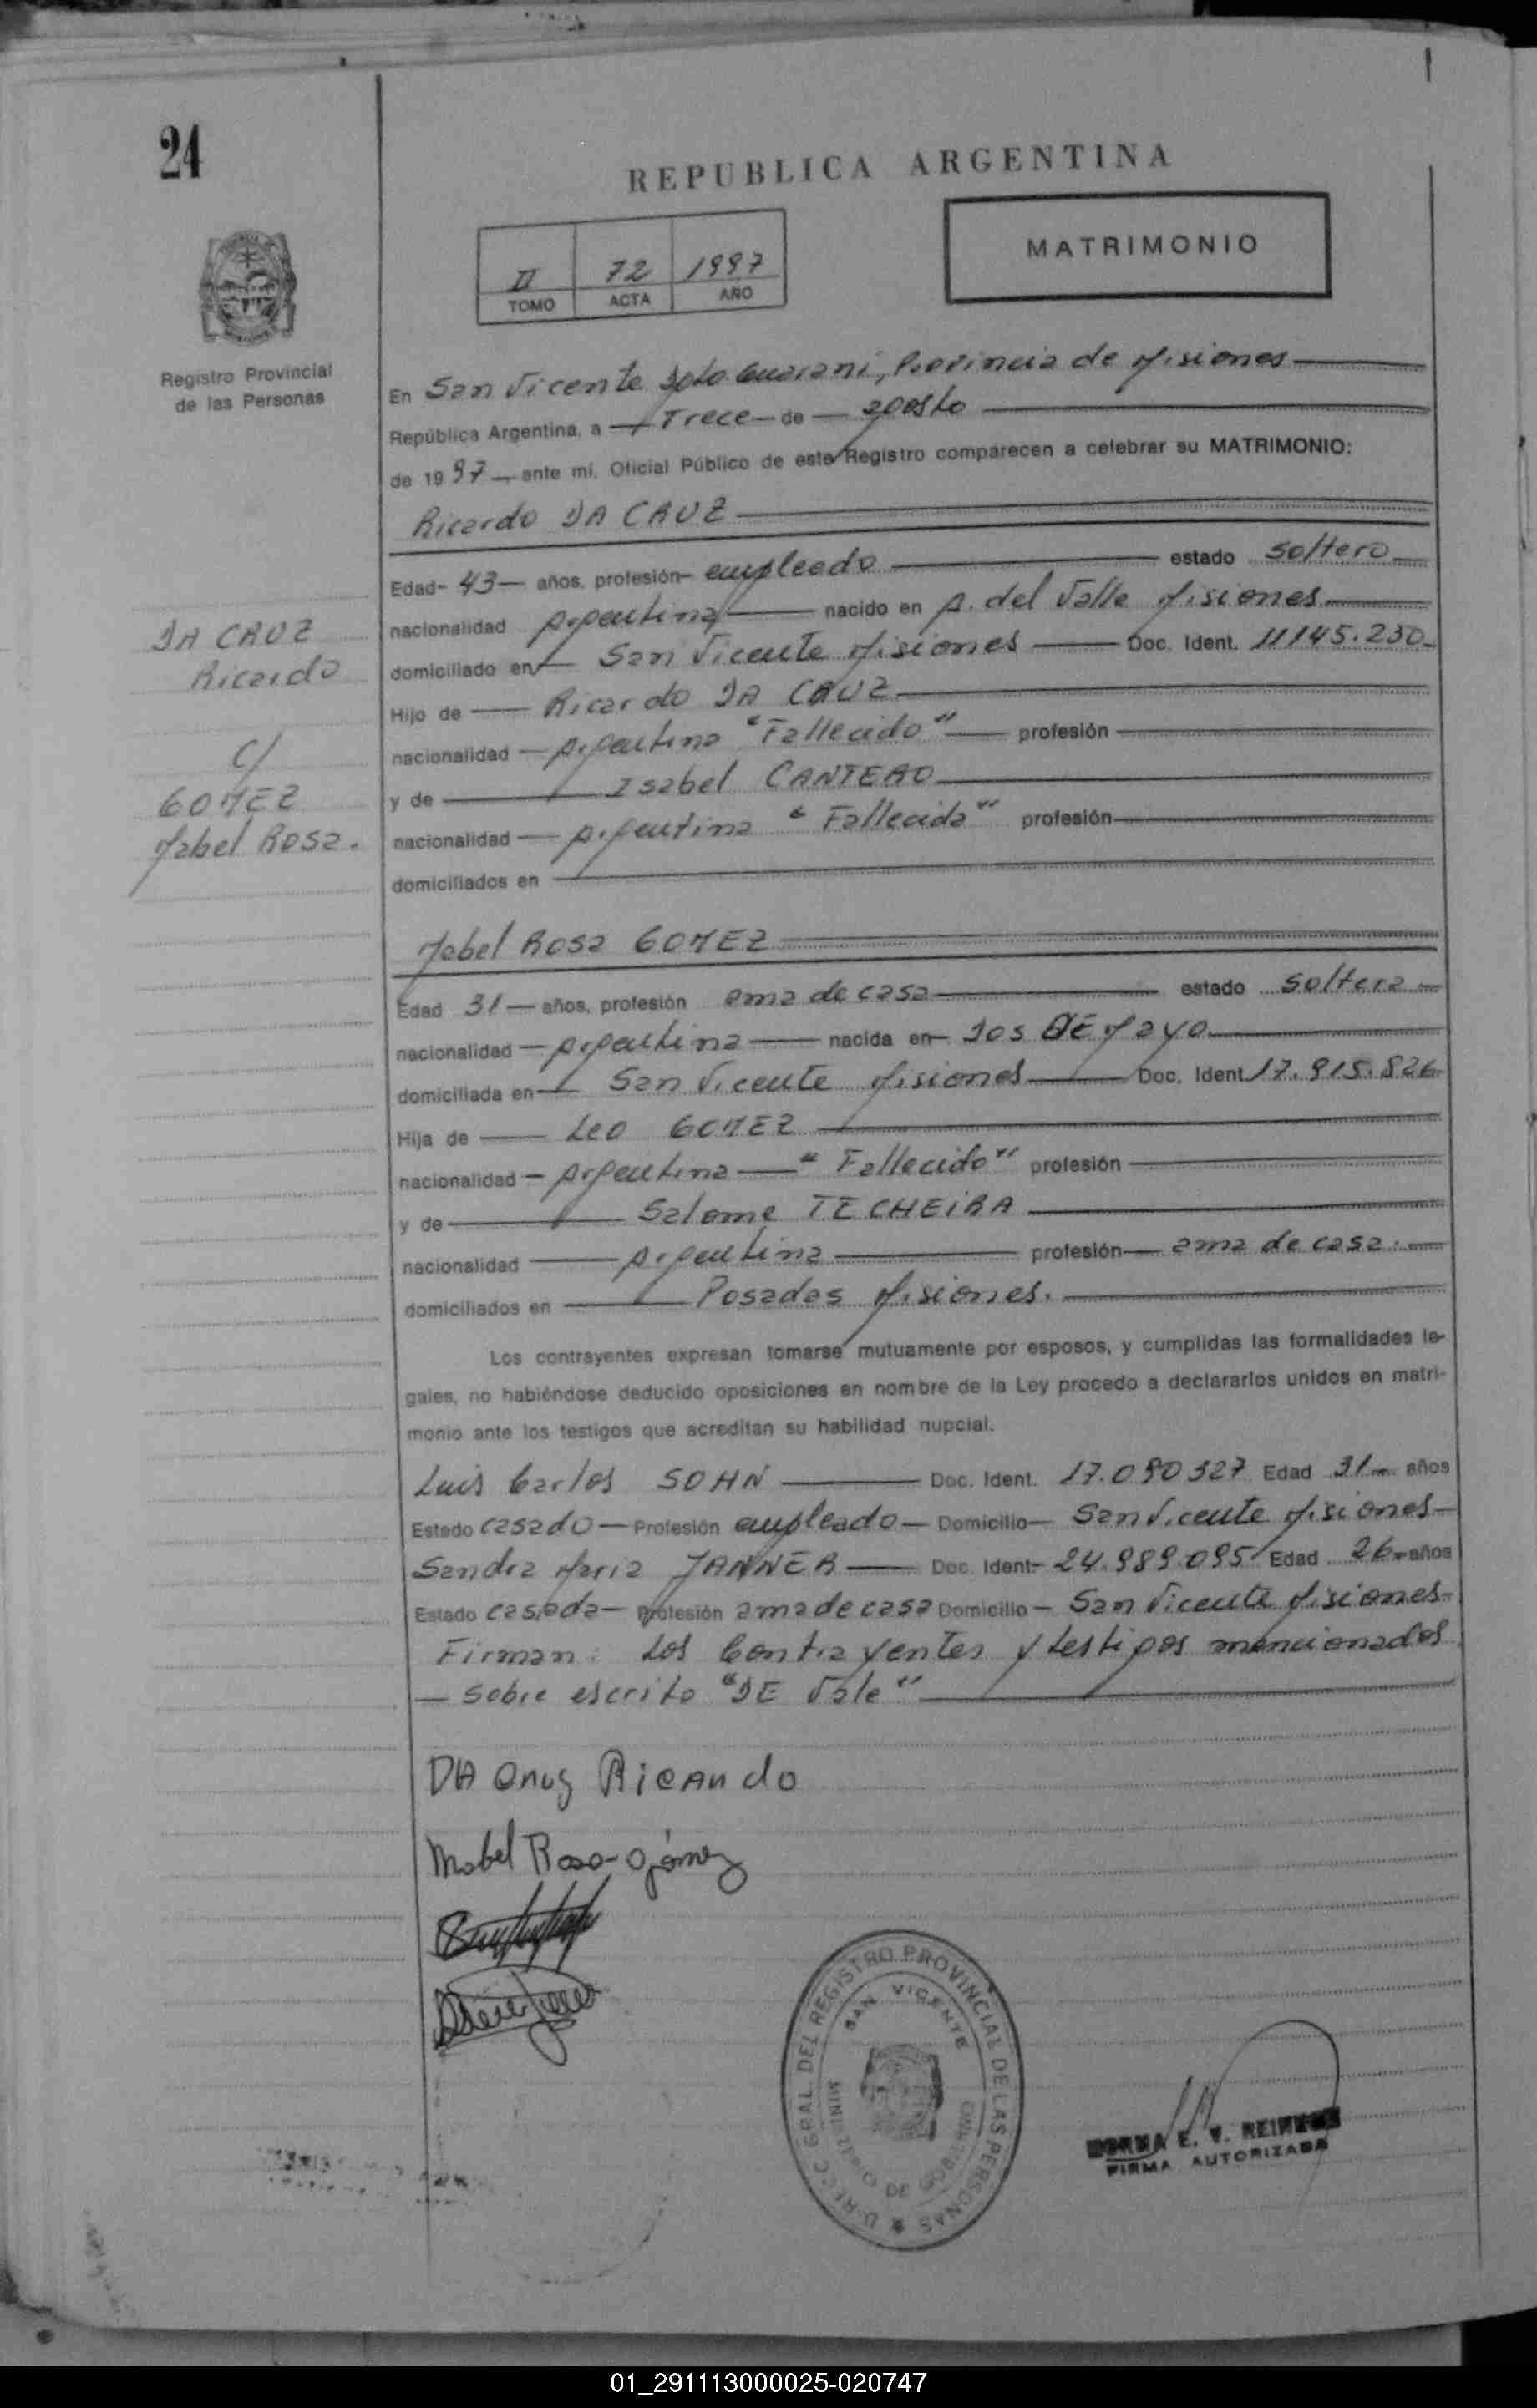 24
REPUBLICA ARGENTINA
II 72 1997
TOMO ACTA AÑO
MATRIMONIO
Registro Provincial
de las Personas
En San Vicente Dpto. Guarani, Provincia de Misiones
República Argentina, a Trece de agosto
de 1997 ante mí, Oficial Público de este Registro comparecen a celebrar su MATRIMONIO:
Ricardo DA CRUZ
Edad 43 años, profesión empleado estado soltero
nacionalidad Argentina nacido en A. del Valle Misiones
domiciliado en San Vicente Misiones Doc. Ident. 11145.230
Hijo de Ricardo DA CRUZ
nacionalidad Argentina "Fallecido" profesión
y de Isabel CANTERO
nacionalidad Argentina "Fallecida" profesión
domiciliados en
DA CRUZ
Ricardo
C/
GOMEZ
Mabel Rosa.
Mabel Rosa GOMEZ
Edad 31 años, profesión ama de casa estado soltera
nacionalidad Argentina nacida en Dos DE Mayo
domiciliada en San Vicente Misiones Doc. Ident 17.915.826
Hija de Leo GOMEZ
nacionalidad Argentina "Fallecido" profesión
y de Salome TECHEiRA
nacionalidad Argentina profesión ama de casa.
domiciliados en Posadas Misiones.
Los contrayentes expresan tomarse mutuamente por esposos, y cumplidas las formalidades le-
gales, no habiéndose deducido oposiciones en nombre de la Ley procedo a declararlos unidos en matri-
monio ante los testigos que acreditan su habilidad nupcial.
Luis Carlos SOHN Doc. Ident. 17.090327 Edad 31 años
Estado casado Profesión empleado Domicilio San Vicente Misiones
Sandra Maria JANNER Doc. Ident 24.989.095 Edad 26 años
Estado casada Profesión ama de casa Domicilio San Vicente Misiones
Firman: Los Contrayentes y testigos mencionados
Sobre escrito "DE Vale"
DA Cruz Ricardo
Mabel Rosa Gómez
DIRECC. GRAL. DEL REGISTRO PROVINCIAL DE LAS PERSONAS
SAN VICENTE
MINISTERIO DE GOBIERNO
NORMA E. V.
FIRMA AUTORIZADA
01_291113000025-020747